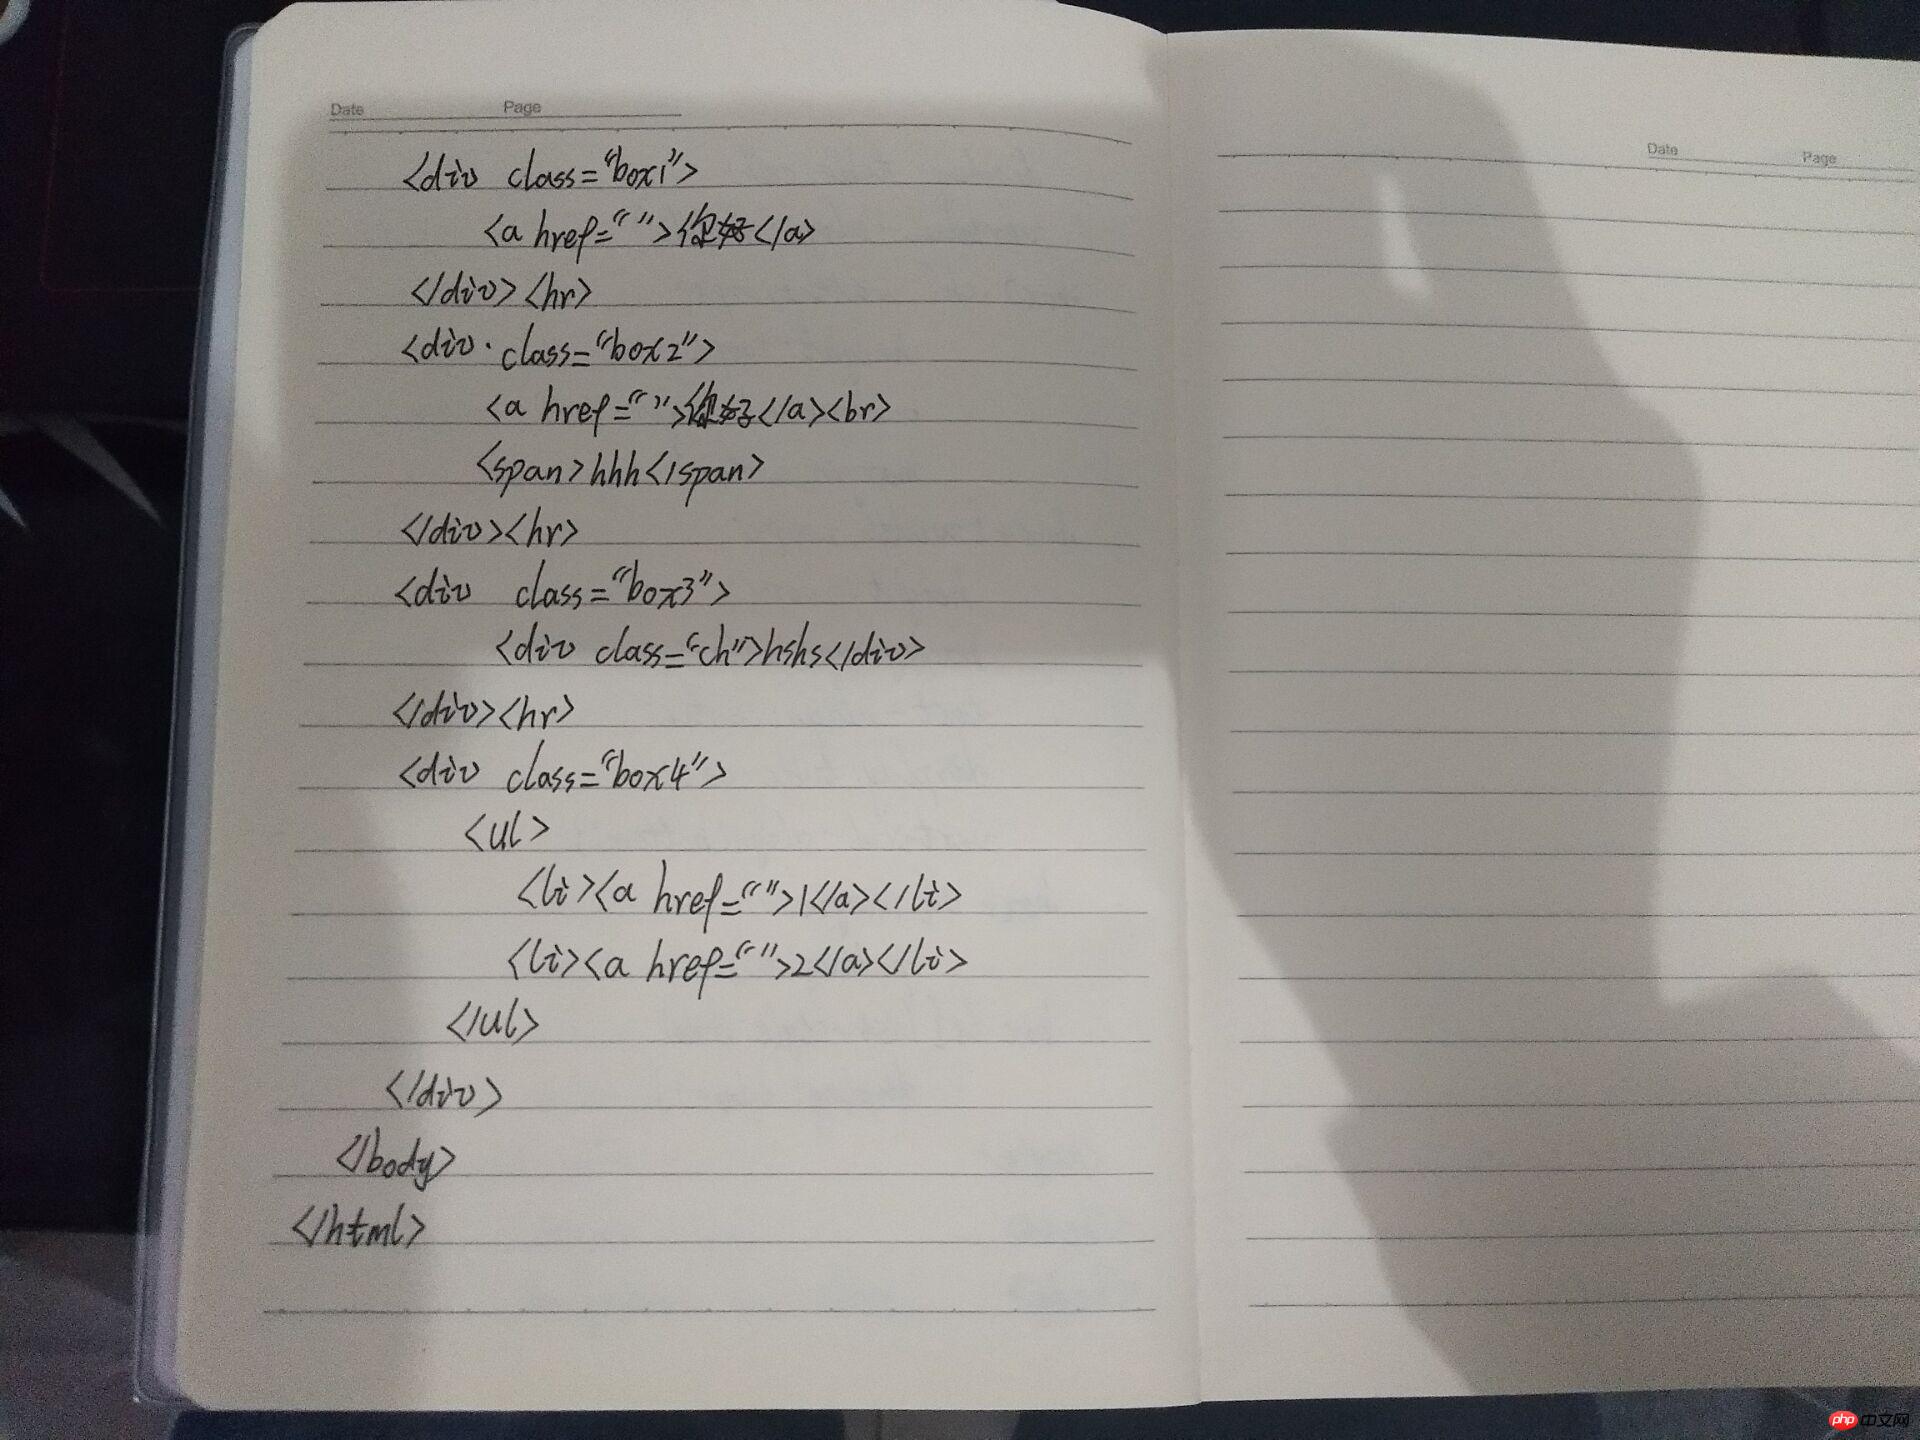 Date Page
<div class="box1">
<a href="">你好</a>
</div><hr>
<div class="box2">
<a href="">你好</a><br>
<span>hhh</span>
</div><hr>
<div class="box3">
<div class="ch">hshs</div>
</div><hr>
<div class="box4">
<ul>
<li><a href="">1</a></li>
<li><a href="">2</a></li>
</ul>
</div>
</body>
</html>
Date Page
php 中文网